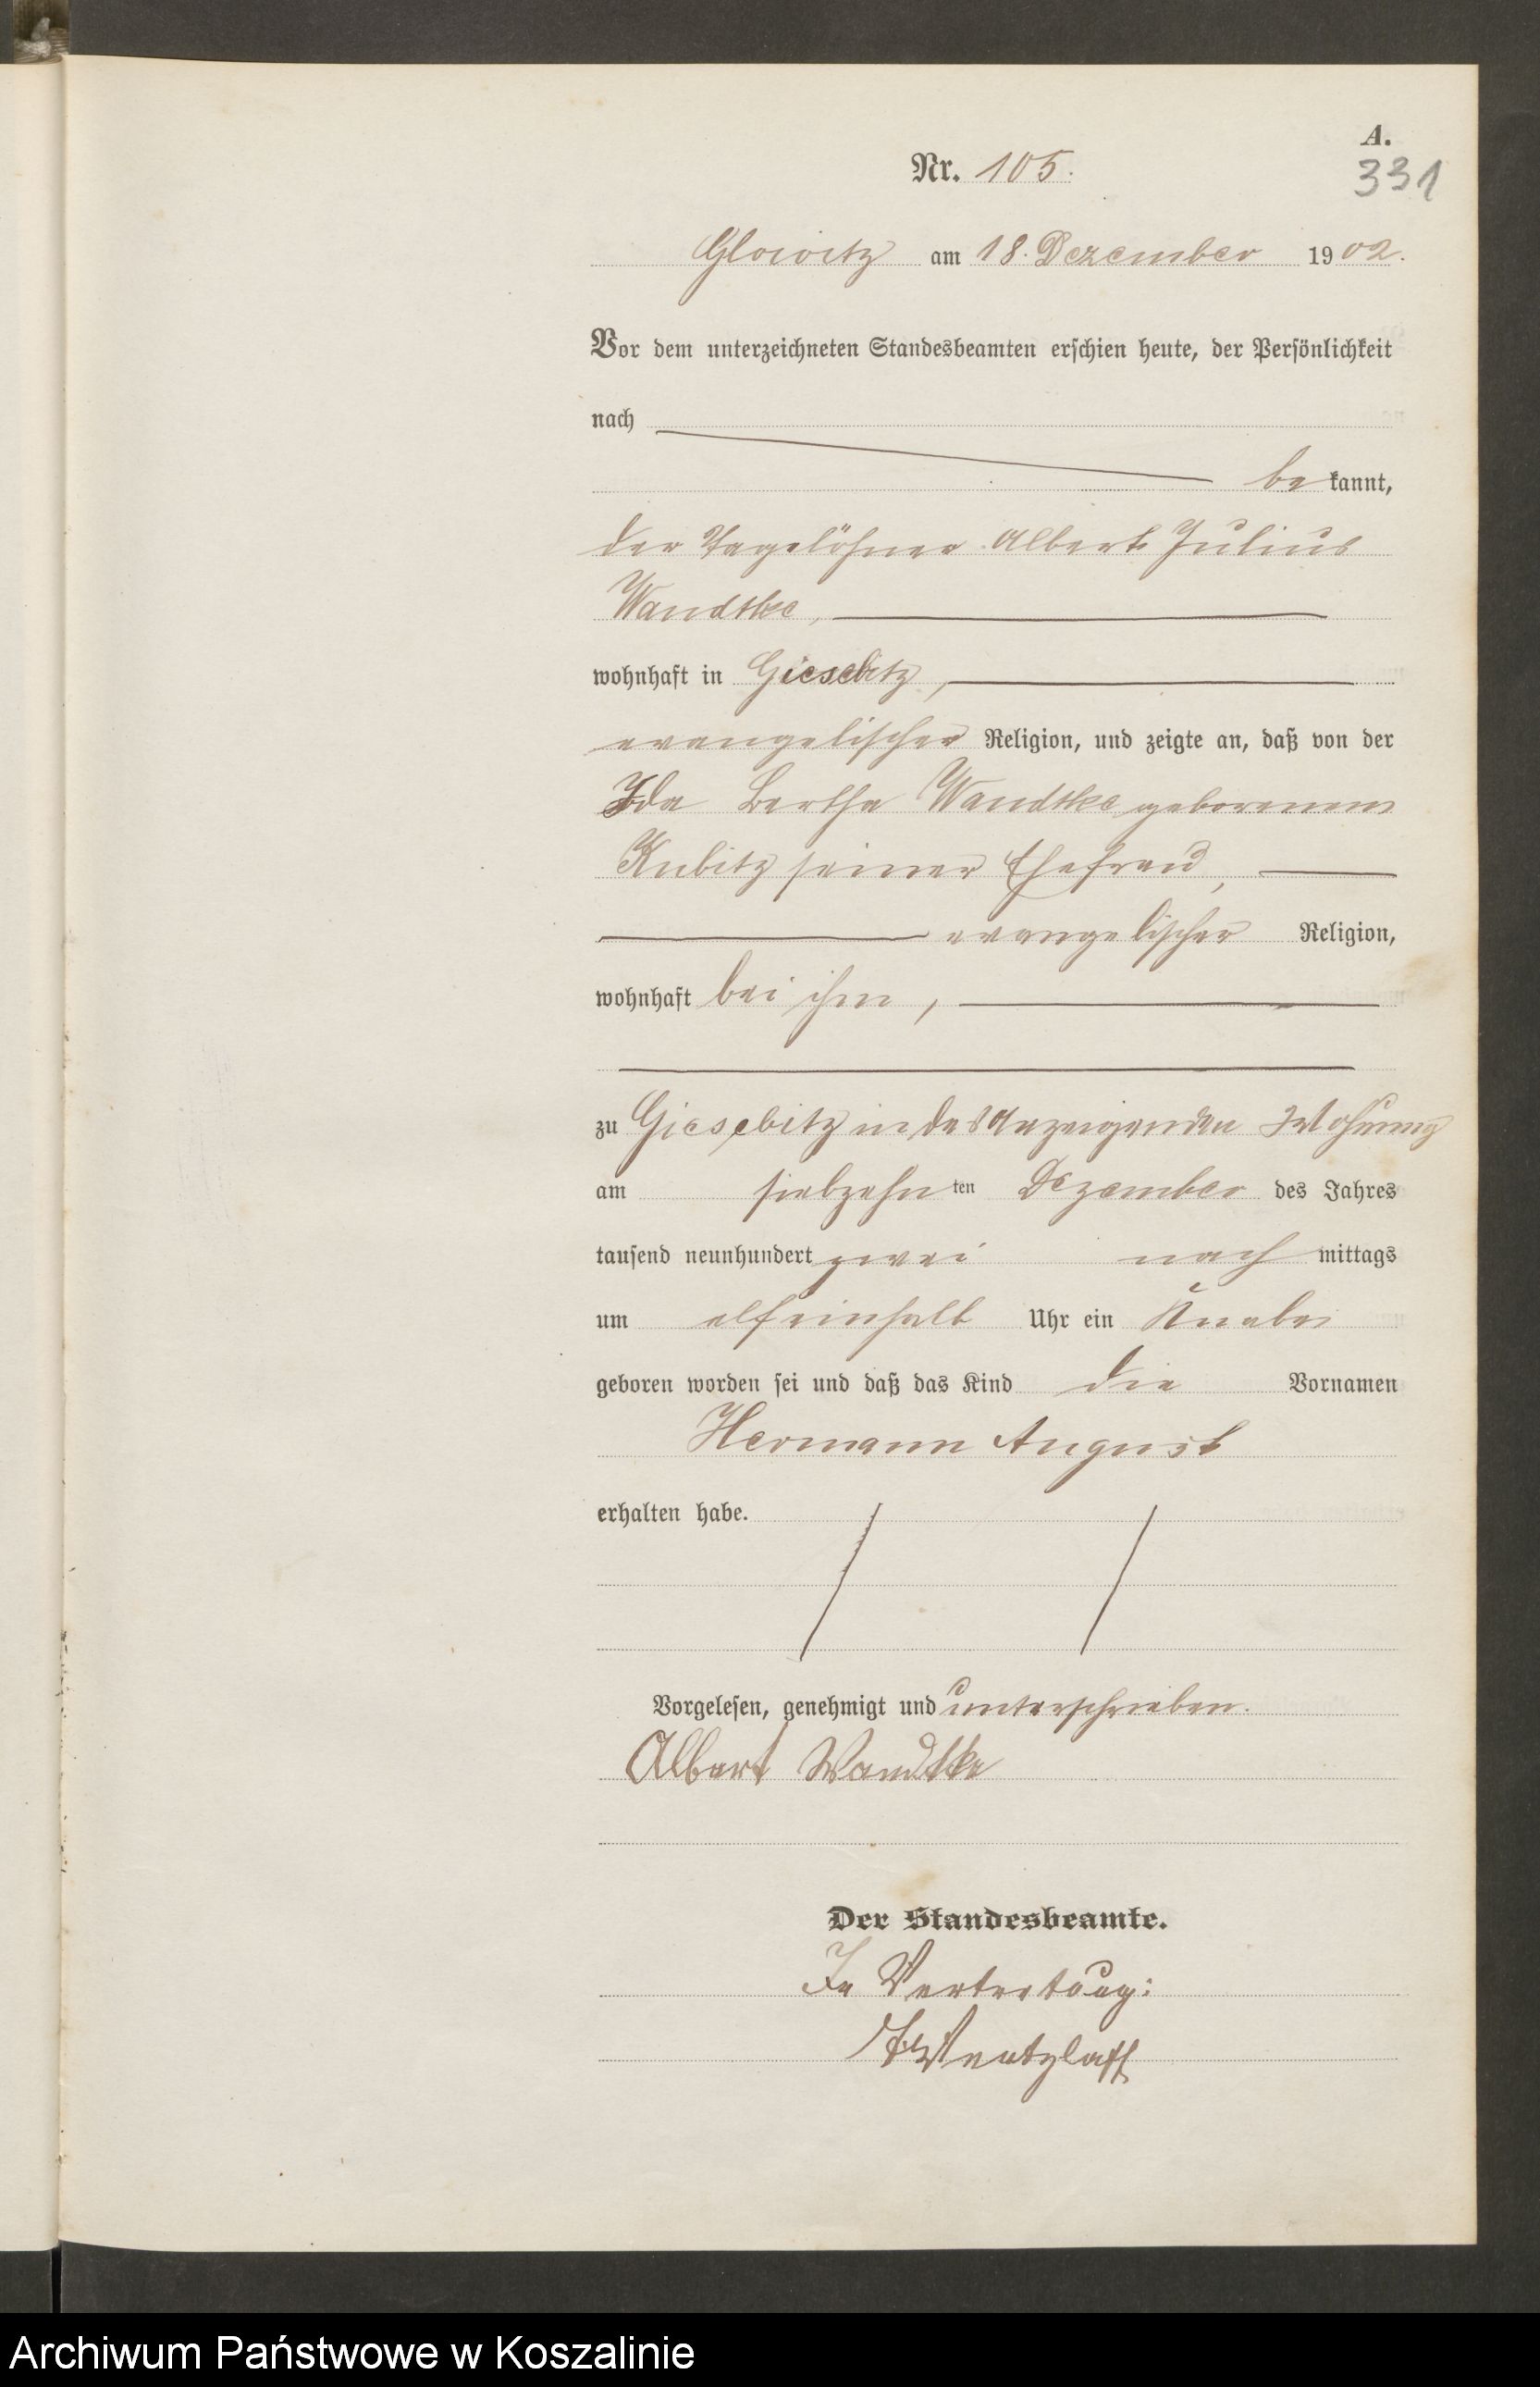 A.
Nr. 105.
331
Glowitz am 18. Dezember 1902.
Vor dem unterzeichneten Standesbeamten erschien heute, der Persönlichkeit
nach
be kannt,
der Tagelöhner Albert Julius
Wandtke,
wohnhaft in Giesebitz,
evangelischer Religion, und zeigte an, daß von der
Ida Bertha Wandtke geborenen
Kubitz seiner Ehefrau,
evangelischer Religion,
wohnhaft bei ihm,
zu Giesebitz in des Anzeigenden Wohnung
am siebzehn ten Dezember des Jahres
tausend neunhundert zwei nach mittags
um elfeinhalb Uhr ein Knabe
geboren worden sei und daß das Kind die Vornamen
Hermann August
erhalten habe.
Vorgelesen, genehmigt und unterschrieben.
Albert Wandtke
Der Standesbeamte.
In Vertretung:
Wentzlaff
Archiwum Państwowe w Koszalinie